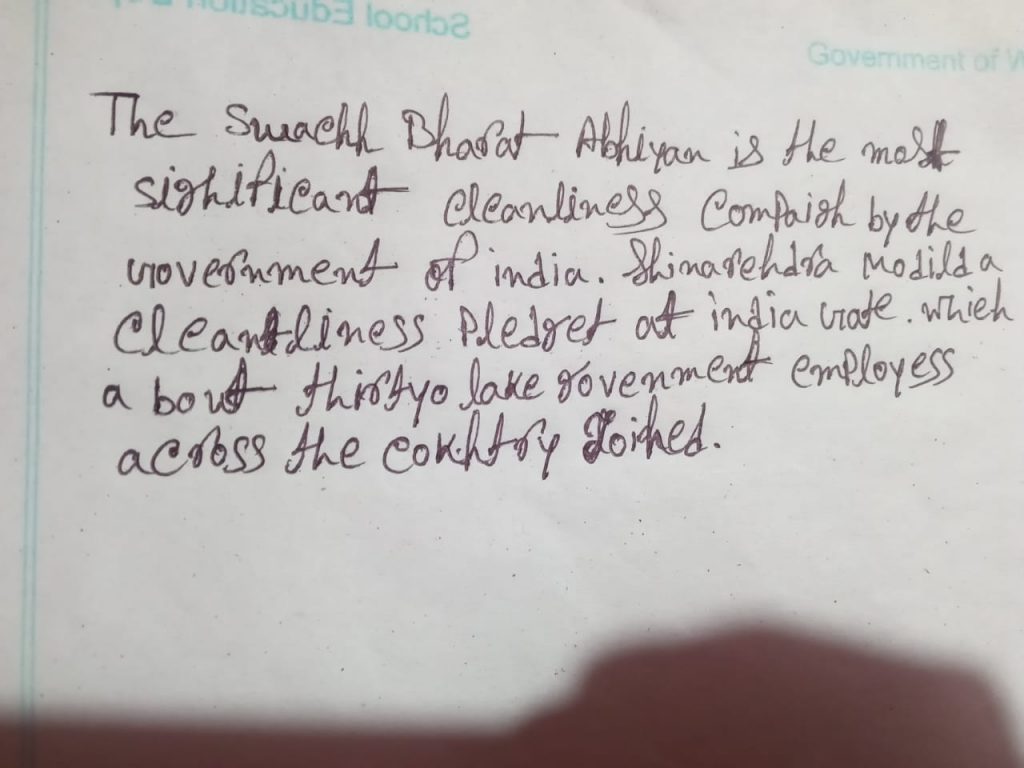 School Education
Government of
The Swachh Bharat Abhiyan is the most
significant cleanliness Compaign by the
Government of india. Shinarendra Modild a
Cleantliness Pledget at india Gate. which
a bout thirtyo lake govenment employess
across the country Joined.